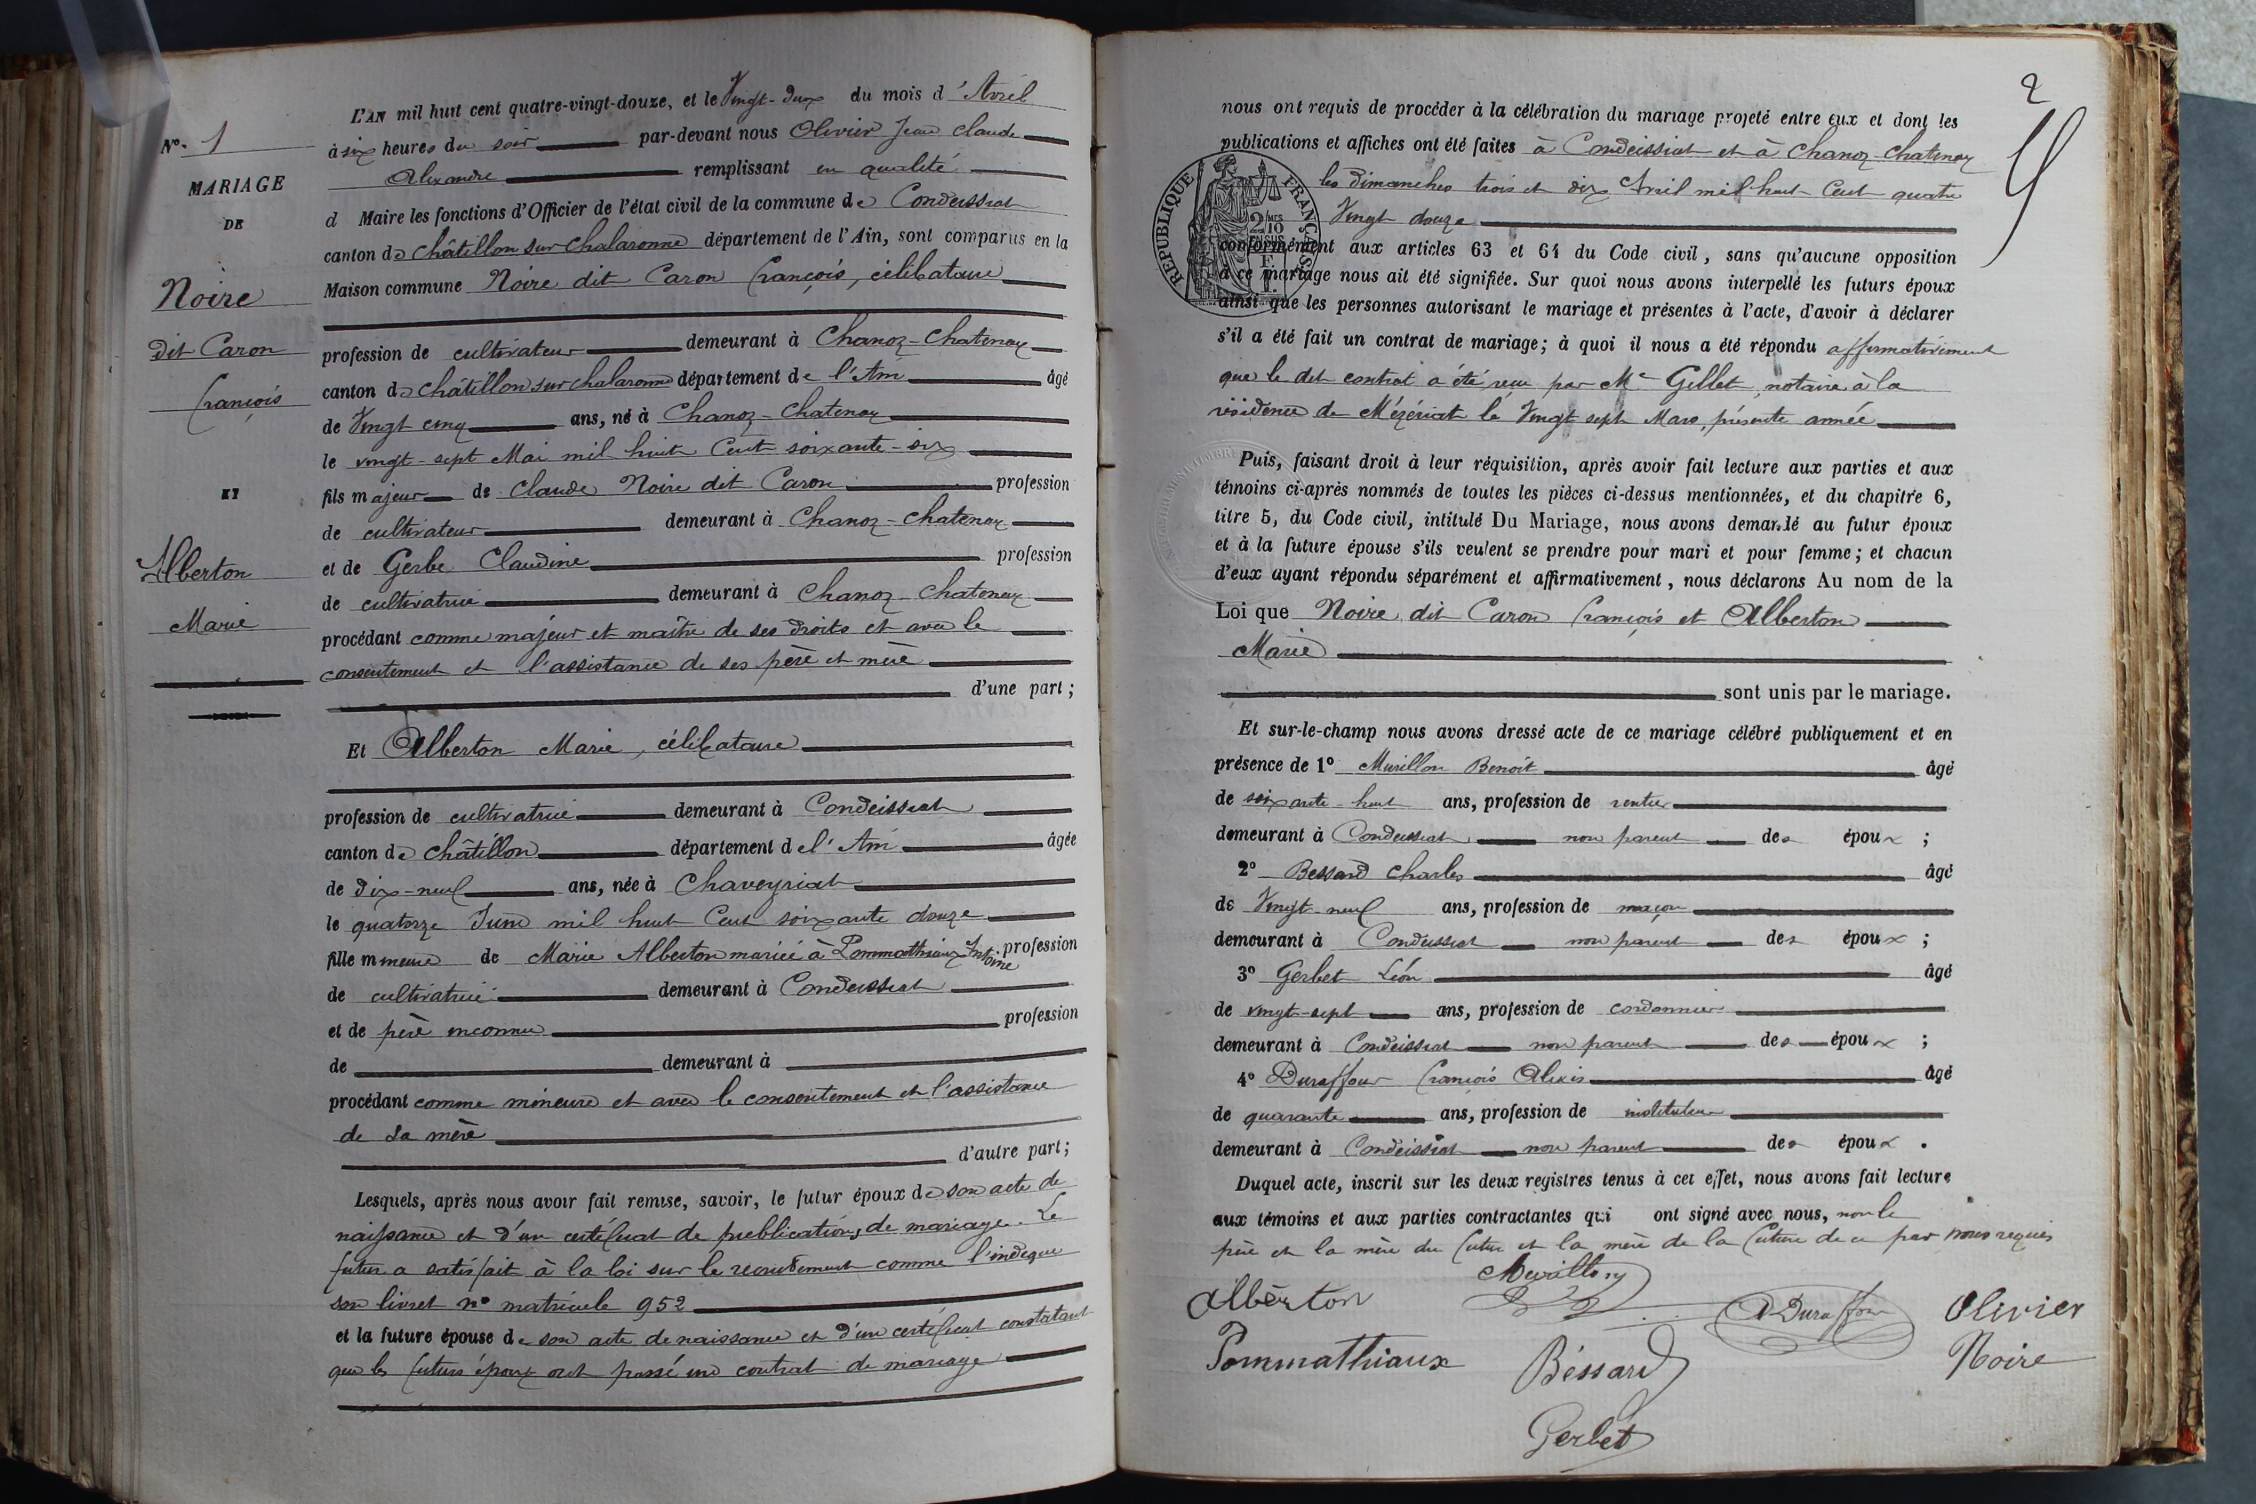 L'AN mil huit cent quatre-vingt-douze, et le Vingt-deux du mois d'Avril
à six heures du soir par-devant nous Olivier Jean Claude
Alexandre remplissant en qualité
d Maire les fonctions d'Officier de l'état civil de la commune de Condeissiat
canton de Châtillon sur Chalaronne département de l'Ain, sont comparus en la
Maison commune Noire dit Caron François, célibataire
profession de cultivateur demeurant à Chanoz-Chatenay
canton de Châtillon sur Chalaronne département de l'Ain âgé
de Vingt cinq ans, né à Chanoz-Chatenay
le vingt-sept Mai mil huit Cent soixante-six
fils majeur de Claude Noire dit Caron profession
de cultivateur demeurant à Chanoz-Chatenay
et de Gerbe Claudine profession
de cultivatrice demeurant à Chanoz-Chatenay
procédant comme majeur et maître de ses droits et avec le
consentement et l'assistance de ses père et mère
d'une part ;
Et Alberton Marie, célibataire
profession de cultivatrice demeurant à Condeissiat
canton de Châtillon département de l'Ain âgée
de dix-neuf ans, née à Chaveyriat
le quatorze Juin mil huit Cent soixante douze
fille mineure de Marie Alberton mariée à Pommathiaux Antoine profession
de cultivatrice demeurant à Condeissiat
et de père inconnu profession
de demeurant à
procédant comme mineure et avec le consentement et l'assistance
de sa mère
d'autre part ;
Lesquels, après nous avoir fait remise, savoir, le futur époux de son acte de
naissance et d'un certificat de publications de mariage. Le
futur a satisfait à la loi sur le recrutement comme l'indique
son livret n° matricule 952
et la future épouse de son acte de naissance et d'un certificat constatant
que les futurs époux ont passé un contrat de mariage
N°. 1
MARIAGE
DE
Noire
dit Caron
François
ET
Alberton
Marie
2
nous ont requis de procéder à la célébration du mariage projeté entre eux et dont les
publications et affiches ont été faites à Condeissiat et à Chanoz-Chatenay
les dimanches trois et dix Avril mil huit Cent quatre
Vingt douze
conformément aux articles 63 et 64 du Code civil, sans qu'aucune opposition
à ce mariage nous ait été signifiée. Sur quoi nous avons interpellé les futurs époux
ainsi que les personnes autorisant le mariage et présentes à l'acte, d'avoir à déclarer
s'il a été fait un contrat de mariage ; à quoi il nous a été répondu affirmativement
que le dit contrat a été reçu par Me Gillet, notaire à la
résidence de Mézériat le Vingt sept Mars, présente année
RÉPUBLIQUE FRANÇAISE
2/10 EN SUS
Puis, faisant droit à leur réquisition, après avoir fait lecture aux parties et aux
témoins ci-après nommés de toutes les pièces ci-dessus mentionnées, et du chapitre 6,
titre 5, du Code civil, intitulé Du Mariage, nous avons demandé au futur époux
et à la future épouse s'ils veulent se prendre pour mari et pour femme ; et chacun
d'eux ayant répondu séparément et affirmativement, nous déclarons Au nom de la
Loi que Noire dit Caron François et Alberton
Marie
sont unis par le mariage.
Et sur-le-champ nous avons dressé acte de ce mariage célébré publiquement et en
présence de 1° Murillon Benoit âgé
de soixante-huit ans, profession de rentier
demeurant à Condeissiat non parent des époux ;
2° Bessard Charles âgé
de Vingt-neuf ans, profession de maçon
demeurant à Condeissiat non parent des époux ;
3° Gerbet Léon âgé
de vingt-sept ans, profession de cordonnier
demeurant à Condeissiat non parent des époux ;
4° Duraffour François Alexis âgé
de quarante ans, profession de instituteur
demeurant à Condeissiat non parent des époux .
Duquel acte, inscrit sur les deux registres tenus à cet effet, nous avons fait lecture
aux témoins et aux parties contractantes qui ont signé avec nous, non le
père et la mère du futur et la mère de la future de ce par nous requis
Alberton
ADuraffour
Olivier
Pommathiaux
Béssard
Noire
Gerbet